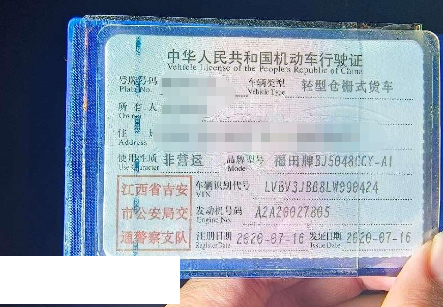 中华人民共和国机动车行驶证
Vehicle License of the People's Republic of China
号牌号码 车辆类型 轻型仓栅式货车
Plate No. Vehicle Type
所有人
Owner
住址
Address
使用性质 非营运 品牌型号 福田牌BJ5048CCY-A1
Use Character Model
江西省吉安 车辆识别代号 LVBV3JBB8LW090424
VIN
市公安局交 发动机号码 A2A20027805
Engine No.
通警察支队 注册日期 2020-07-16 发证日期 2020-07-16
Register Date Issue Date